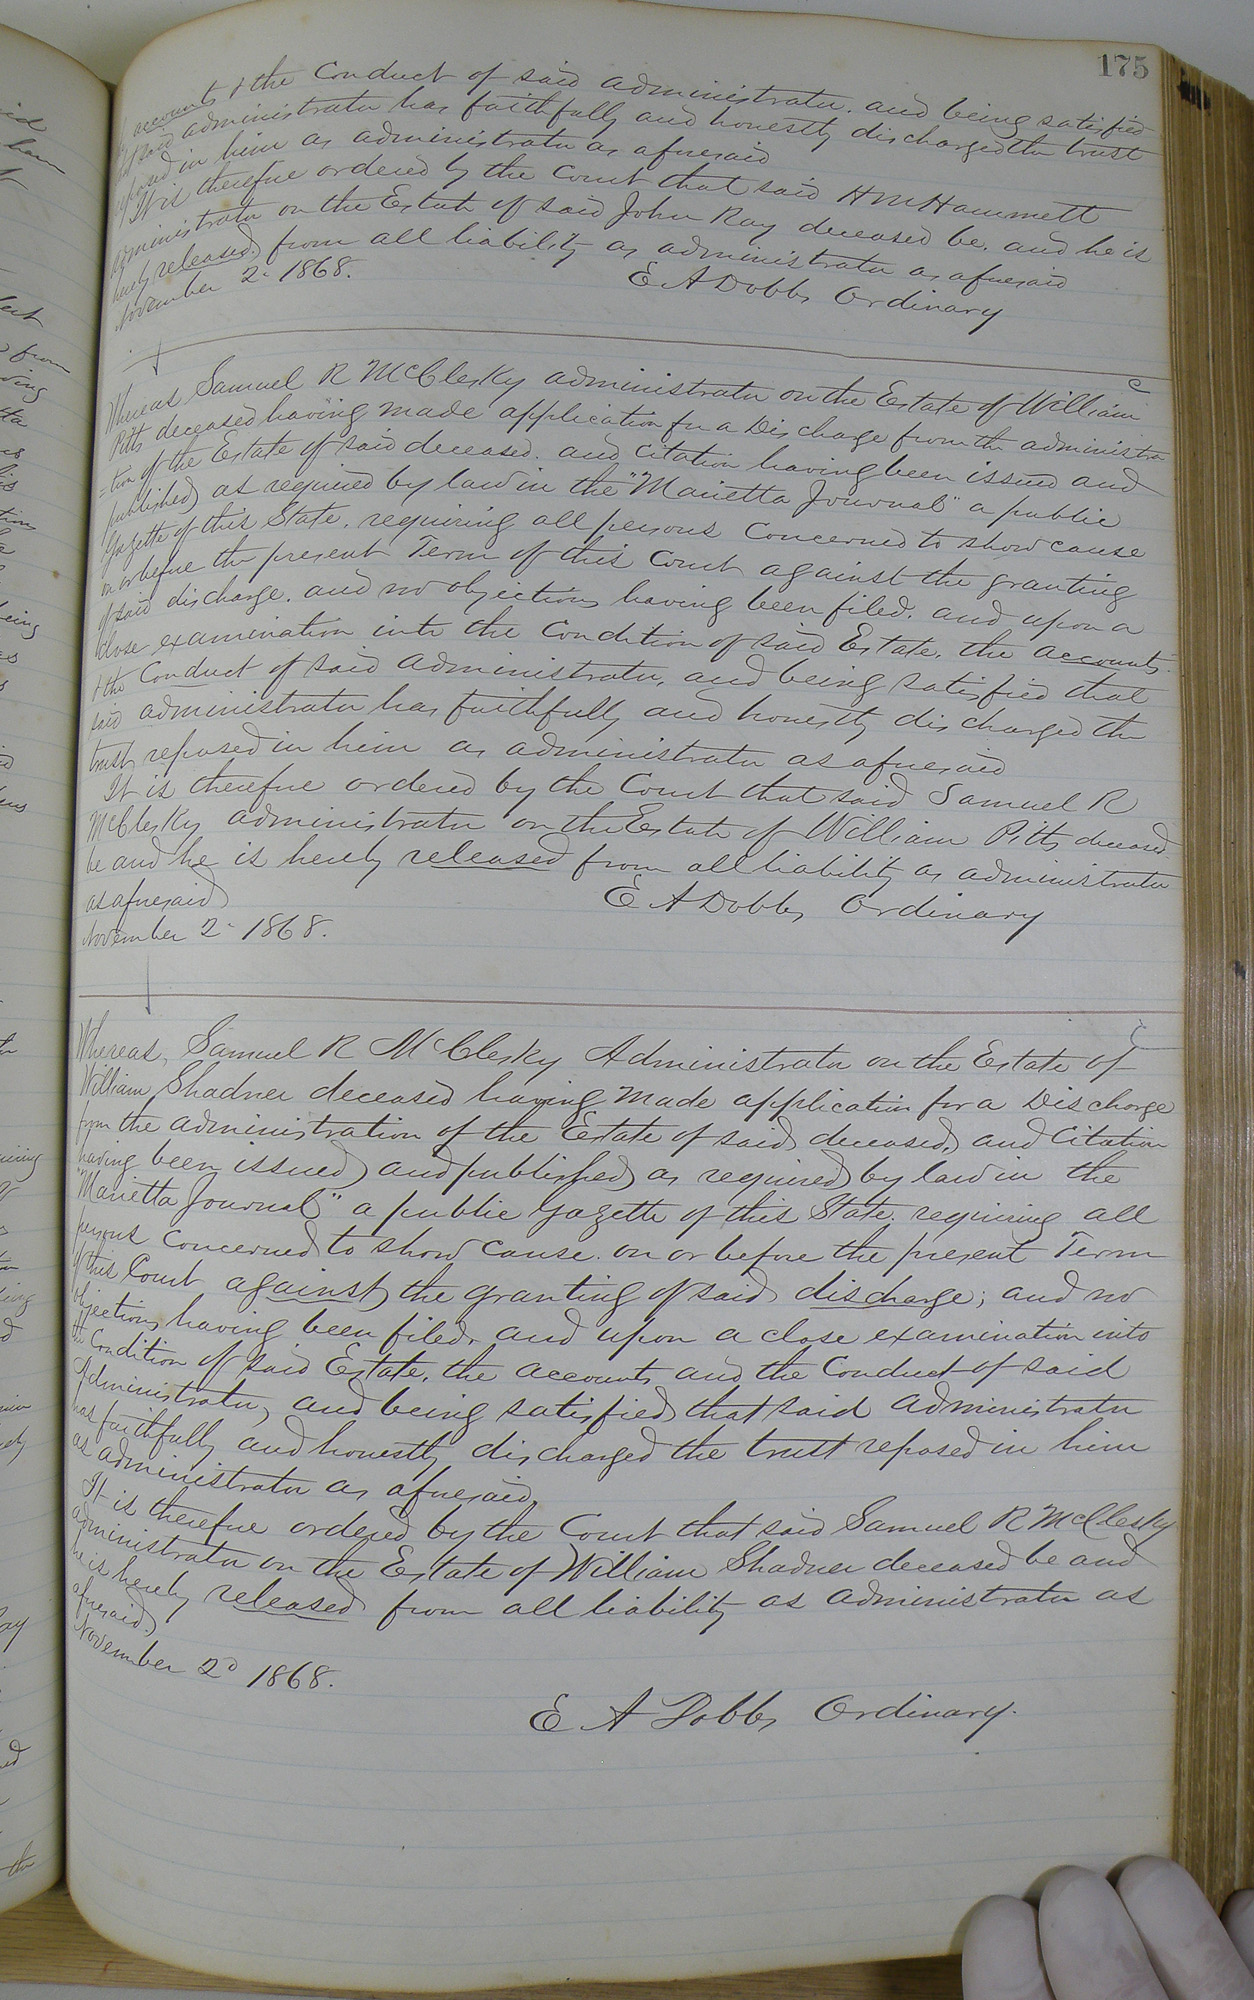 175
accounts & the Conduct of said administrator. and being satisfied
that said administrator has faithfully and honestly discharged the trust
reposed in him as administrator as aforesaid
It is therefore ordered by the Court that said H M Hammett
administrator on the Estate of said John Ray deceased be. and he is
hereby released from all liability as administrator as aforesaid
November 2d 1868. E A Dobbs Ordinary
Whereas Samuel R McClesky administrator on the Estate of William
Pitts deceased having made application for a Discharge from the administra
=tion of the Estate of said deceased. and Citation having been issued and
published as required by law in the "Marietta Journal" a public
Gazette of this State. requiring all persons concerned to show cause
on or before the present Term of this Court against the granting
of said discharge. and no objections having been filed. and upon a
close examination into the Condition of said Estate, the accounts
& the Conduct of said administrator, and being satisfied that
said administrator has faithfully and honestly discharged the
trust reposed in him as administrator as aforesaid
It is therefore ordered by the Court that said Samuel R
McClesky administrator on the Estate of William Pitts deceased
be and he is hereby released from all liability as administrator
as aforesaid E A Dobbs Ordinary
November 2d 1868.
Whereas, Samuel R McClesky Administrator on the Estate of
William Shadner deceased having made application for a Discharge
from the administration of the Estate of said deceased, and Citation
having been issued and published as required by law in the
"Marietta Journal" a public Gazette of this State. requiring all
persons concerned to show cause. on or before the present Term
of this Court against the granting of said discharge; and no
objections having been filed, and upon a close examination into
the Condition of said Estate, the accounts and the Conduct of said
Administrator, and being satisfied that said administrator
has faithfully and honestly discharged the trust reposed in him
as administrator as aforesaid,
It is therefore ordered by the Court that said Samuel R McClesky
administrator on the Estate of William Shadner deceased be and
he is hereby released from all liability as administrator as
aforesaid.
November 2d 1868.
E A Dobbs Ordinary.